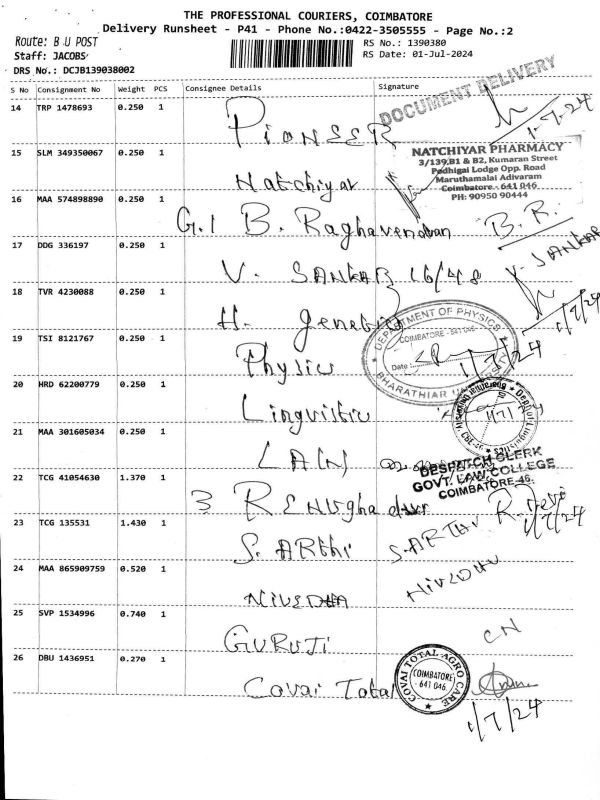 THE PROFESSIONAL COURIERS, COIMBATORE
Delivery Runsheet - P41 - Phone No.:0422-3505555 - Page No.:2
Route: B U POST
RS No.: 1390380
Staff: JACOBS
RS Date: 01-Jul-2024
DRS No.: DCJB139038002
S No Consignment No Weight PCS Consignee Details Signature
DOCUMENT DELIVERY
14 TRP 1478693 0.250 1 PIONEER 1-7-24
15 SLM 349350067 0.250 1 Natchiyar
NATCHIYAR PHARMACY
3/139,B1 & B2, Kumaran Street
Padhigai Lodge Opp. Road
Maruthamalai Adivaram
Coimbatore - 641 046
PH: 90950 90444
16 MAA 574898890 0.250 1 G.1 B. Raghavendran B.R.
17 DDG 336197 0.250 1 V. SANKAR 16/48 V. SANKAR
18 TVR 4230088 0.250 1 H. genetics 1/7/24
19 TSI 8121767 0.250 1 Physics 1/7/24
DEPARTMENT OF PHYSICS
COIMBATORE - 641 046
Date:
BHARATHIAR
20 HRD 62200779 0.250 1 Linguistic 1/7/24
21 MAA 301605034 0.250 1 LAW
DESPATCH CLERK
GOVT. LAW COLLEGE
COIMBATORE-46.
22 TCG 41054630 1.370 1 3 RENUgha devi R. Devi
1/7/24
23 TCG 135531 1.430 1 S. ARthi S. ARTHI
24 MAA 865909759 0.520 1 NIVEDHA NIVEDHA
25 SVP 1534996 0.740 1 GURUJI CN
26 DBU 1436951 0.270 1 Covai Total
COVAI TOTAL AGRO CARE
COIMBATORE
641 046
1/7/24